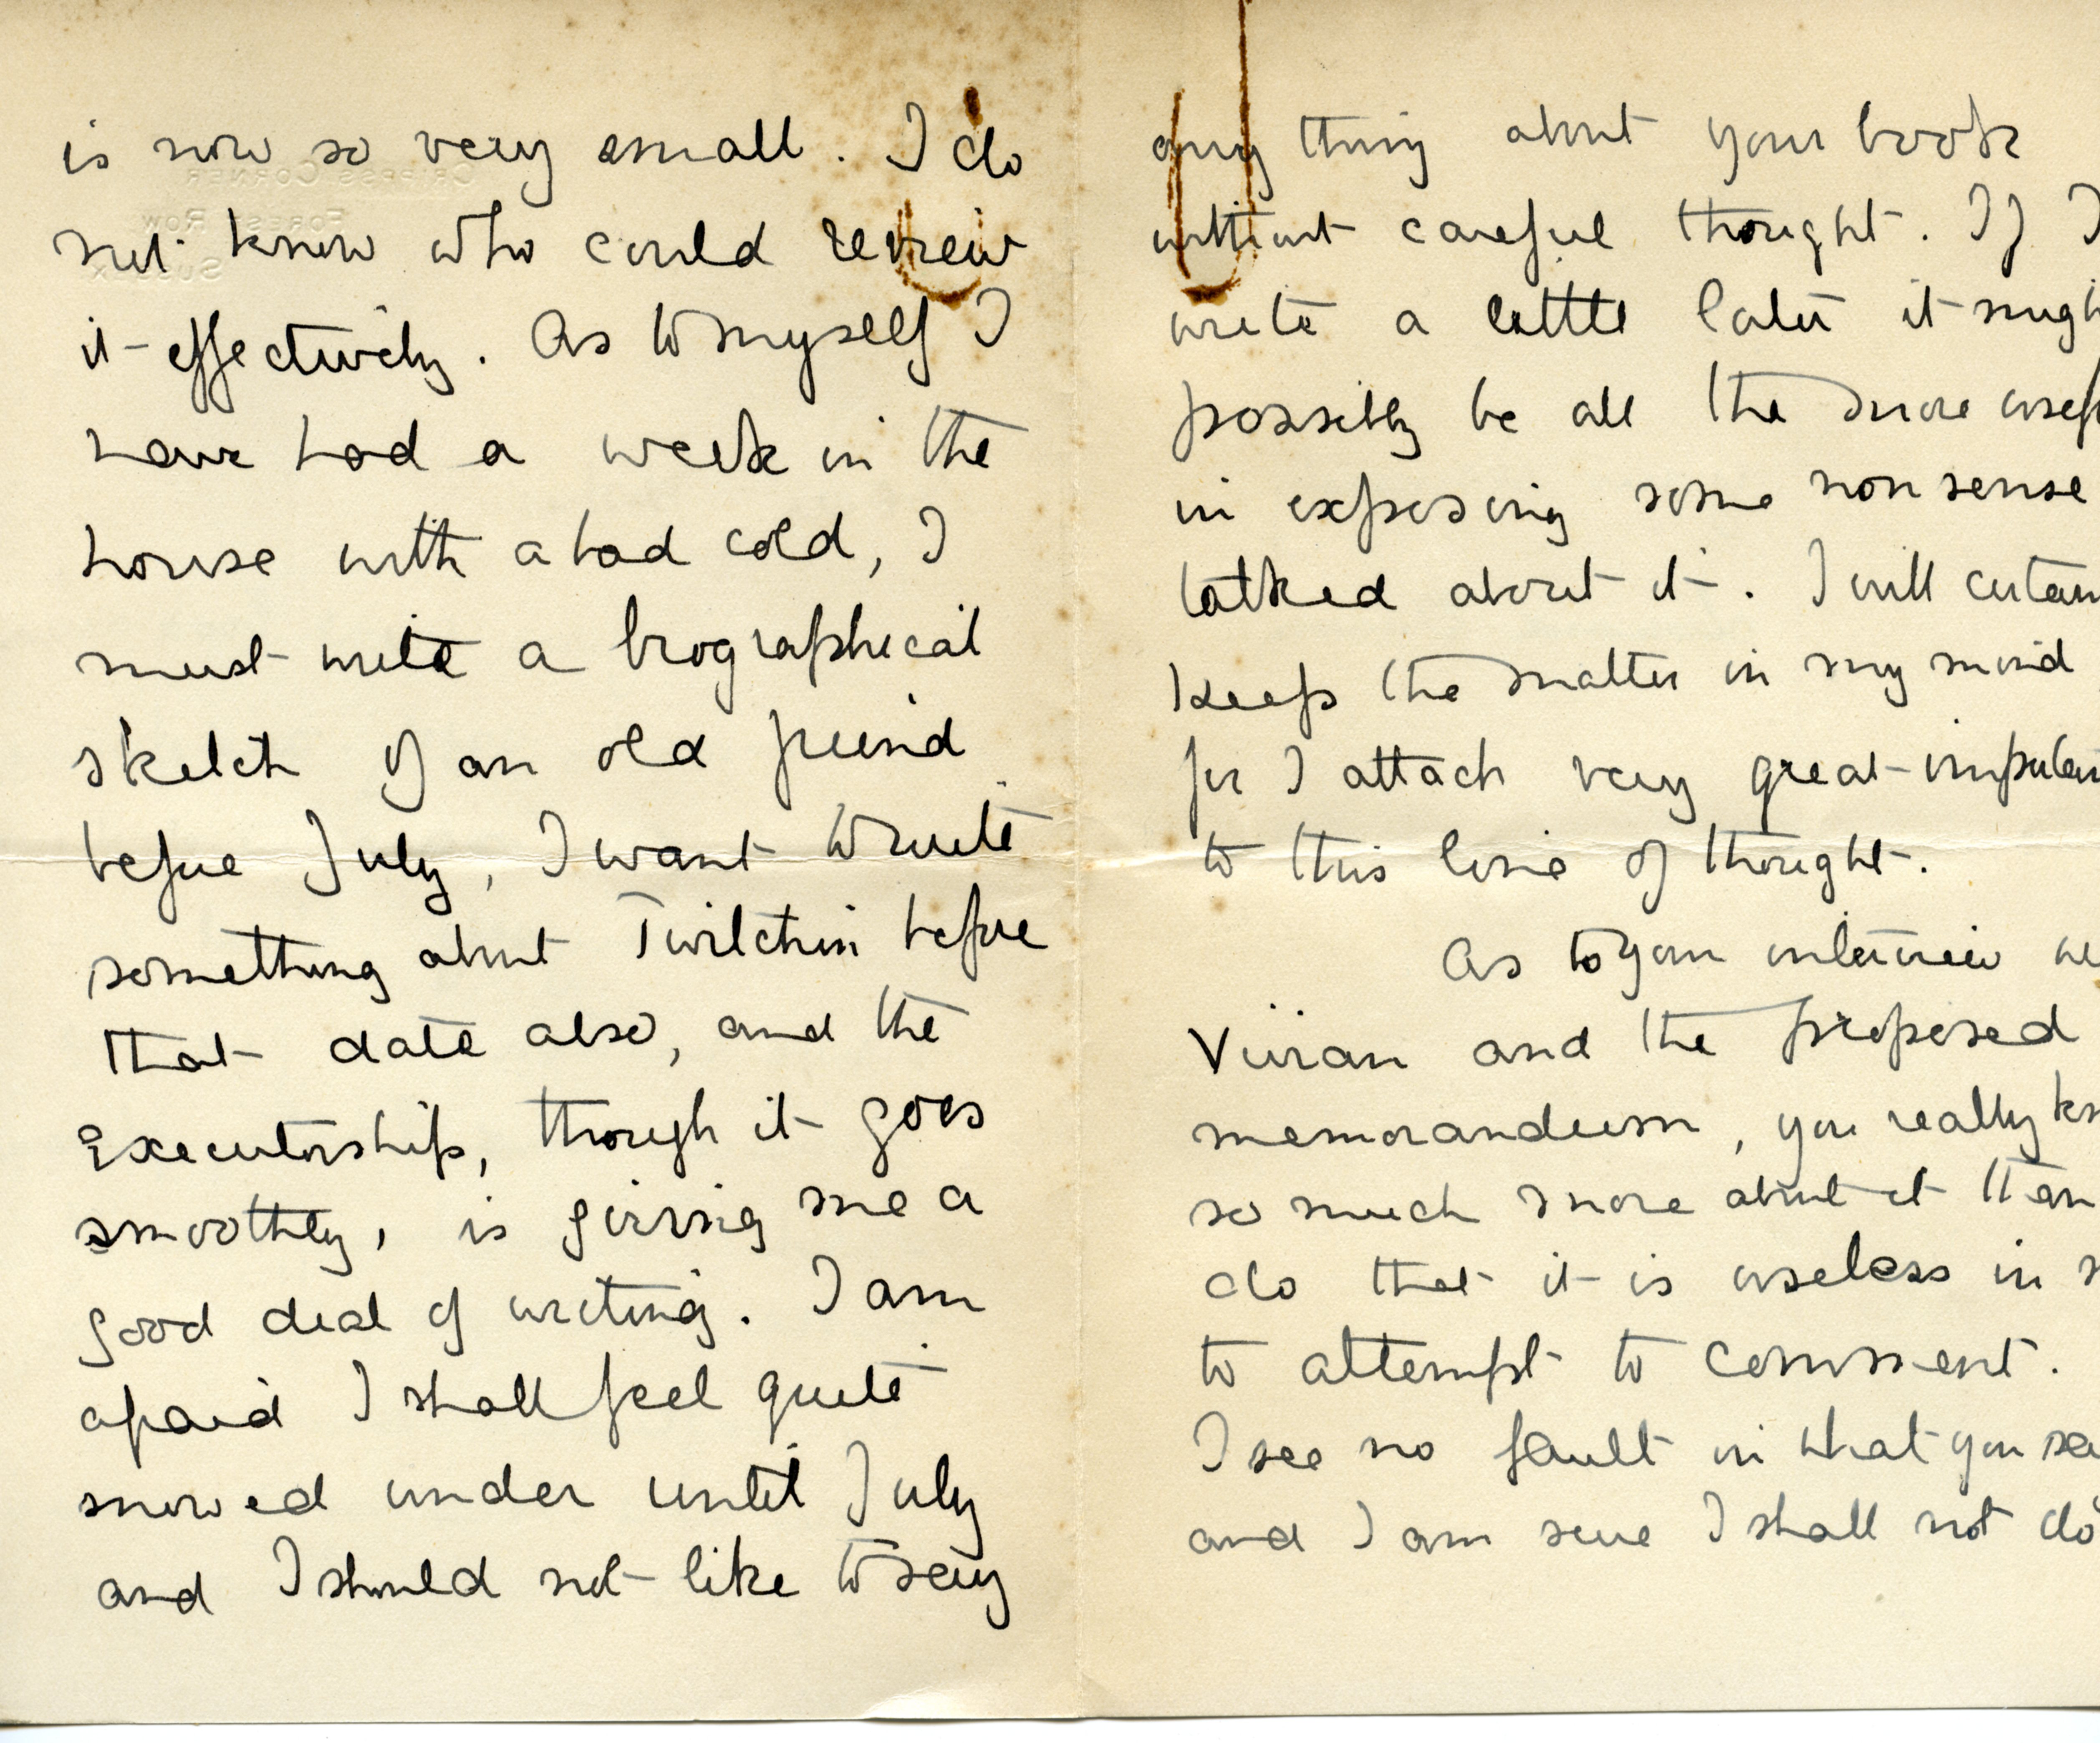 is now so very small. I do
not know who could review
it effectively. As to myself I
have had a week in the
house with a bad cold, I
must write a biographical
sketch of an old friend
before July, I want to write
something about Twitchin before
that date also, and the
Executorship, though it goes
smoothly, is giving me a
good deal of writing. I am
afraid I shall feel quite
snowed under until July
and I should not like to say
CRIPPS CORNER
FOREST ROW
SUSSEX
any thing about your book
without careful thought. If I
write a little later it migh
possibly be all the more usef
in exposing some nonsense
talked about it. I will certain
keep the matter in my mind
for I attach very great importan
to this line of thought.
As to your interview
Vivian and the proposed
memorandum, you really kn
so much more about it than
do that it is useless in
to attempt to comment.
I see no fault in what you sa
and I am sure I shall not do